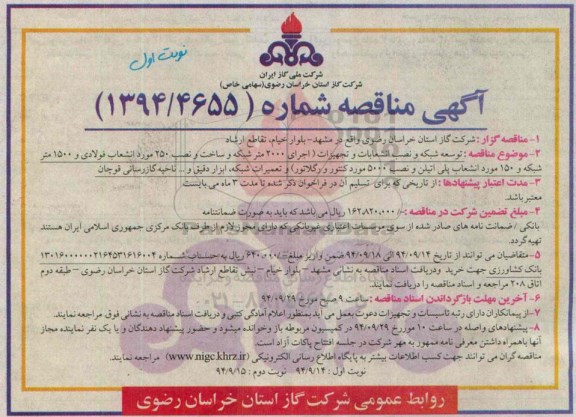 نوبت اول
شرکت ملی گاز ایران
شرکت گاز استان خراسان رضوی(سهامی خاص)
آگهی مناقصه شماره ( ۱۳۹۴/۴۶۵۵)
۱- مناقصه گزار : شرکت گاز استان خراسان رضوی واقع در مشهد- بلوار خیام، تقاطع ارشاد
۲- موضوع مناقصه : توسعه شبکه و نصب انشعابات و تجهیزات ( اجرای ۲۰۰۰ متر شبکه و ساخت و نصب ۲۵۰ مورد انشعاب فولادی و ۱۵۰۰ متر
شبکه و ۱۵۰ مورد انشعاب پلی اتیلن و نصب ۵۰۰۰ مورد کنتور و رگلاتور) و تعمیرات شبکه، ابزار دقیق و... ناحیه گازرسانی قوچان
۳- مدت اعتبار پیشنهادها : از تاریخی که برای تسلیم آن در فراخوان ذکر شده تا مدت ۳ ماه می بایست
معتبر باشد.
۴- مبلغ تضمین شرکت در مناقصه :-/۱۶۲۸۲۰۰۰۰ ریال می باشد که باید به صورت ضمانتنامه
بانکی / ضمانت نامه های صادر شده از سوی موسسات اعتباری غیربانکی که دارای مجوز لازم از طرف بانک مرکزی جمهوری اسلامی ایران هستند
تهیه گردد.
۵- متقاضیان می توانند از تاریخ ۹۴/۰۹/۱۴ الی ۹۴/۰۹/۱۸ ضمن واریز مبلغ -/۶۴۰۰۰۰ ریال به حساب شماره
بانک کشاورزی جهت خرید و دریافت اسناد مناقصه به نشانی مشهد - بلوار خیام - نبش تقاطع ارشاد شرکت گاز استان خراسان رضوی - طبقه دوم
اتاق ۲۰۸ مراجعه و اسناد مناقصه را دریافت نمایند.
۶- آخرین مهلت بازگرداندن اسناد مناقصه : ساعت ۹ صبح مورخ ۹۴/۰۹/۲۹
۷- از پیمانکاران دارای رتبه تاسیسات و تجهیزات دعوت بعمل می آید بمنظور اعلام آمادگی کتبی و دریافت اسناد مناقصه به نشانی فوق مراجعه نمایند.
۸- پیشنهادهای واصله در ساعت ۱۰ مورخ ۹۴/۰۹/۲۹ در کمیسیون مربوطه باز وخوانده میشود و حضور پیشنهاد دهندگان و یا یک نفر نماینده مجاز
آنها باهمراه داشتن معرفی نامه ممهور به مهر شرکت در جلسه افتتاح پاکات آزاد است.
مناقصه گران می توانند جهت کسب اطلاعات بیشتر به پایگاه اطلاع رسانی الکترونیکی (www.nigc.khrz.ir) مراجعه نمایند.
نوبت اول : ۹۴/۹/۱۴ نوبت دوم : ۹۴/۹/۱۵
روابط عمومی شرکت گاز استان خراسان رضوی